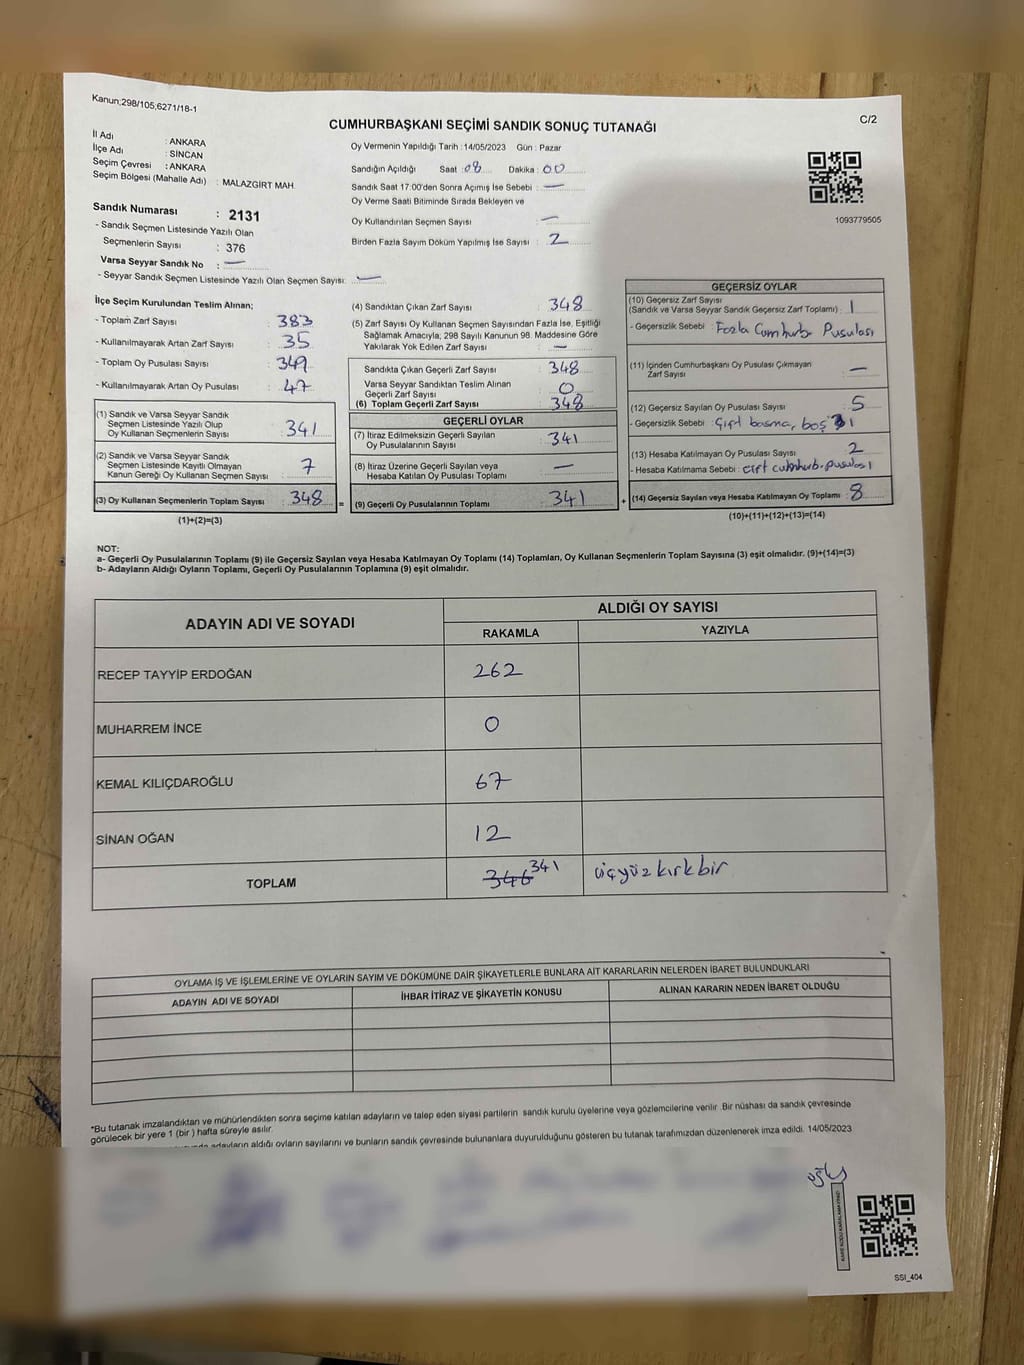 Kanun;298/105,6271/18-1
C/2
CUMHURBAŞKANI SEÇİMİ SANDIK SONUÇ TUTANAĞI
İl Adı : ANKARA
İlçe Adı : SİNCAN
Seçim Çevresi : ANKARA
Seçim Bölgesi (Mahalle Adı) : MALAZGİRT MAH.
Oy Vermenin Yapıldığı Tarih :14/05/2023 Gün : Pazar
Sandığın Açıldığı Saat :08 Dakika :00
Sandık Saat 17:00'den Sonra Açımış İse Sebebi : —
Oy Verme Saati Bitiminde Sırada Bekleyen ve
Oy Kullandırılan Seçmen Sayısı : —
Birden Fazla Sayım Döküm Yapılmış İse Sayısı : 2
1093779505
Sandık Numarası : 2131
- Sandık Seçmen Listesinde Yazılı Olan
Seçmenlerin Sayısı : 376
Varsa Seyyar Sandık No : —
- Seyyar Sandık Seçmen Listesinde Yazılı Olan Seçmen Sayısı: —
İlçe Seçim Kurulundan Teslim Alınan;
- Toplam Zarf Sayısı : 383
- Kullanılmayarak Artan Zarf Sayısı : 35
- Toplam Oy Pusulası Sayısı : 349
- Kullanılmayarak Artan Oy Pusulası : 47
(1) Sandık ve Varsa Seyyar Sandık
Seçmen Listesinde Yazılı Olup
Oy Kullanan Seçmenlerin Sayısı : 341
(2) Sandık ve Varsa Seyyar Sandık
Seçmen Listesinde Kayıtlı Olmayan
Kanun Gereği Oy Kullanan Seçmen Sayısı : 7
(3) Oy Kullanan Seçmenlerin Toplam Sayısı : 348 =
(1)+(2)=(3)
(4) Sandıktan Çıkan Zarf Sayısı : 348
(5) Zarf Sayısı Oy Kullanan Seçmen Sayısından Fazla İse, Eşitliği
Sağlamak Amacıyla, 298 Sayılı Kanunun 98. Maddesine Göre
Yakılarak Yok Edilen Zarf Sayısı : —
Sandıkta Çıkan Geçerli Zarf Sayısı : 348
Varsa Seyyar Sandıktan Teslim Alınan
Geçerli Zarf Sayısı : 0
(6) Toplam Geçerli Zarf Sayısı : 348
GEÇERLİ OYLAR
(7) İtiraz Edilmeksizin Geçerli Sayılan
Oy Pusulalarının Sayısı : 341
(8) İtiraz Üzerine Geçerli Sayılan veya
Hesaba Katılan Oy Pusulası Toplamı : —
(9) Geçerli Oy Pusulalarının Toplamı : 341 +
GEÇERSİZ OYLAR
(10) Geçersiz Zarf Sayısı
(Sandık ve Varsa Seyyar Sandık Geçersiz Zarf Toplamı) : 1
- Geçersizlik Sebebi : Fazla Cumhurb. Pusulası
(11) İçinden Cumhurbaşkanı Oy Pusulası Çıkmayan
Zarf Sayısı : —
(12) Geçersiz Sayılan Oy Pusulası Sayısı : 5
- Geçersizlik Sebebi : Çift basma, boş 1
(13) Hesaba Katılmayan Oy Pusulası Sayısı : 2
- Hesaba Katılmama Sebebi : çift cumhurb. pusulası
(14) Geçersiz Sayılan veya Hesaba Katılmayan Oy Toplamı : 8
(10)+(11)+(12)+(13)=(14)
NOT:
a- Geçerli Oy Pusulalarının Toplamı (9) ile Geçersiz Sayılan veya Hesaba Katılmayan Oy Toplamı (14) Toplamları, Oy Kullanan Seçmenlerin Toplam Sayısına (3) eşit olmalıdır. (9)+(14)=(3)
b- Adayların Aldığı Oyların Toplamı, Geçerli Oy Pusulalarının Toplamına (9) eşit olmalıdır.
ADAYIN ADI VE SOYADI
ALDIĞI OY SAYISI
RAKAMLA YAZIYLA
RECEP TAYYİP ERDOĞAN 262
MUHARREM İNCE 0
KEMAL KILIÇDAROĞLU 67
SİNAN OĞAN 12
TOPLAM 346 341 üçyüzkırkbir
OYLAMA İŞ VE İŞLEMLERİNE VE OYLARIN SAYIM VE DÖKÜMÜNE DAİR ŞİKAYETLERLE BUNLARA AİT KARARLARIN NELERDEN İBARET BULUNDUKLARI
ADAYIN ADI VE SOYADI İHBAR İTİRAZ VE ŞİKAYETİN KONUSU ALINAN KARARIN NEDEN İBARET OLDUĞU
*Bu tutanak imzalandıktan ve mühürlendikten sonra seçime katılan adayların ve talep eden siyasi partilerin sandık kurulu üyelerine veya gözlemcilerine verilir. Bir nüshası da sandık çevresinde
görülecek bir yere 1 (bir ) hafta süreyle asılır.
adayların aldığı oyların sayılarını ve bunların sandık çevresinde bulunanlara duyurulduğunu gösteren bu tutanak tarafımızdan düzenlenerek imza edildi. 14/05/2023
SSI_404